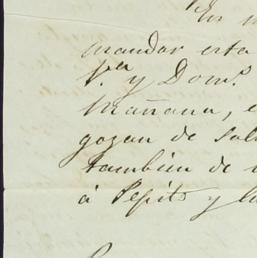 En
mandar esta
V.ª y Dom.º
mañana, e
gozan de sal
tambien de
á Pepito y l